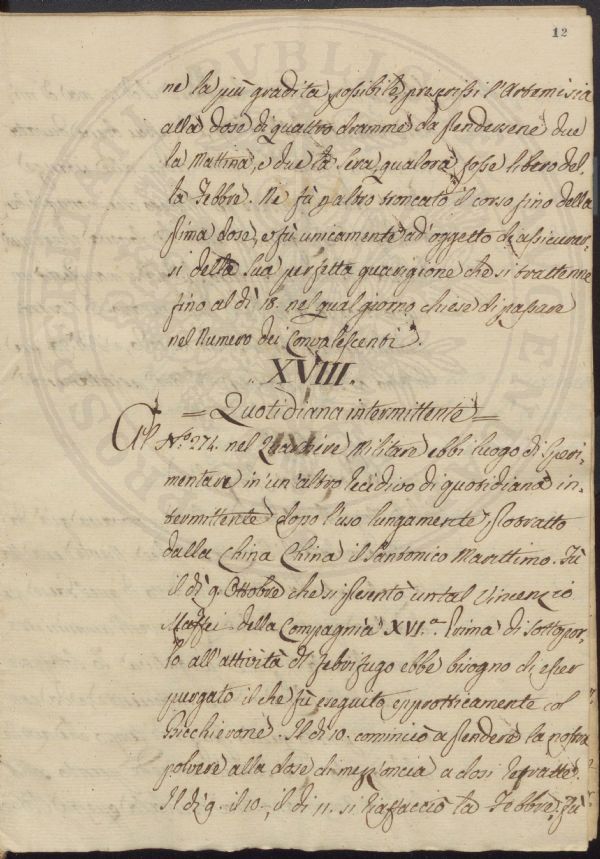 12
ne la più gradita possibile, prescrissi l'Artemisia
alla dose di quattro dramme da prendersene due
la Mattina, e due la sera, qualora fosse libero del
la Febbre. Ne fù troncato il corso fino dalla
prima dose, e fù unicamente ad oggetto di assicurar
si della sua perfetta guarigione che si trattenne
fino al dì 18. nel qual giorno chiese di passare
nel Numero dei Convalescenti.
XVIII.
= Quotidiana intermittente =
Al N.º 274. nel Quartiere Militare ebbi luogo di speri
mentare in un'altro recidivo di quotidiana in
termittente dopo l'uso lungamente protratto
dalla China China il Santonico Marittimo. Fù
il dì 9. Ottobre che si presentò un tal Vincenzio
Maffei della Compagnia XVI.a Prima di sottopor
lo all'attività di febrifugo ebbe bisogno di esser
purgato il che fù eseguito epicratticamente col
Bicchierone. Il dì 10. cominciò a prendere la nostra
polvere alla dose di mezz'oncia a dosi refratte.
Il dì 9. il 10, il dì 11. si riaffacciò la Febbre, fù